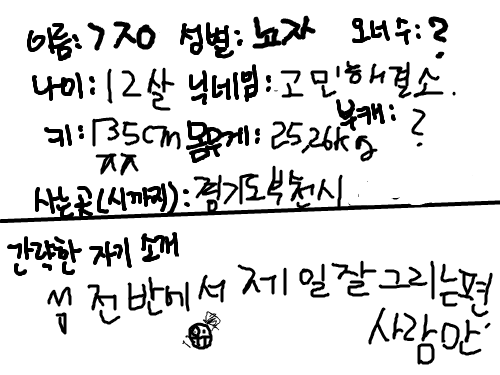 이름: ㄱㅈㅇ 성별: 뇨자 오너 수: ?
나이: 12살 닉네임: 고민해결소.
키: 135cm 몸무게: 25,26kg 부캐: ?
ㅉㅉ
사는곳(시까지): 경기도부천시
간략한 자기 소개
전 반에서 제일잘그리는편
사람만